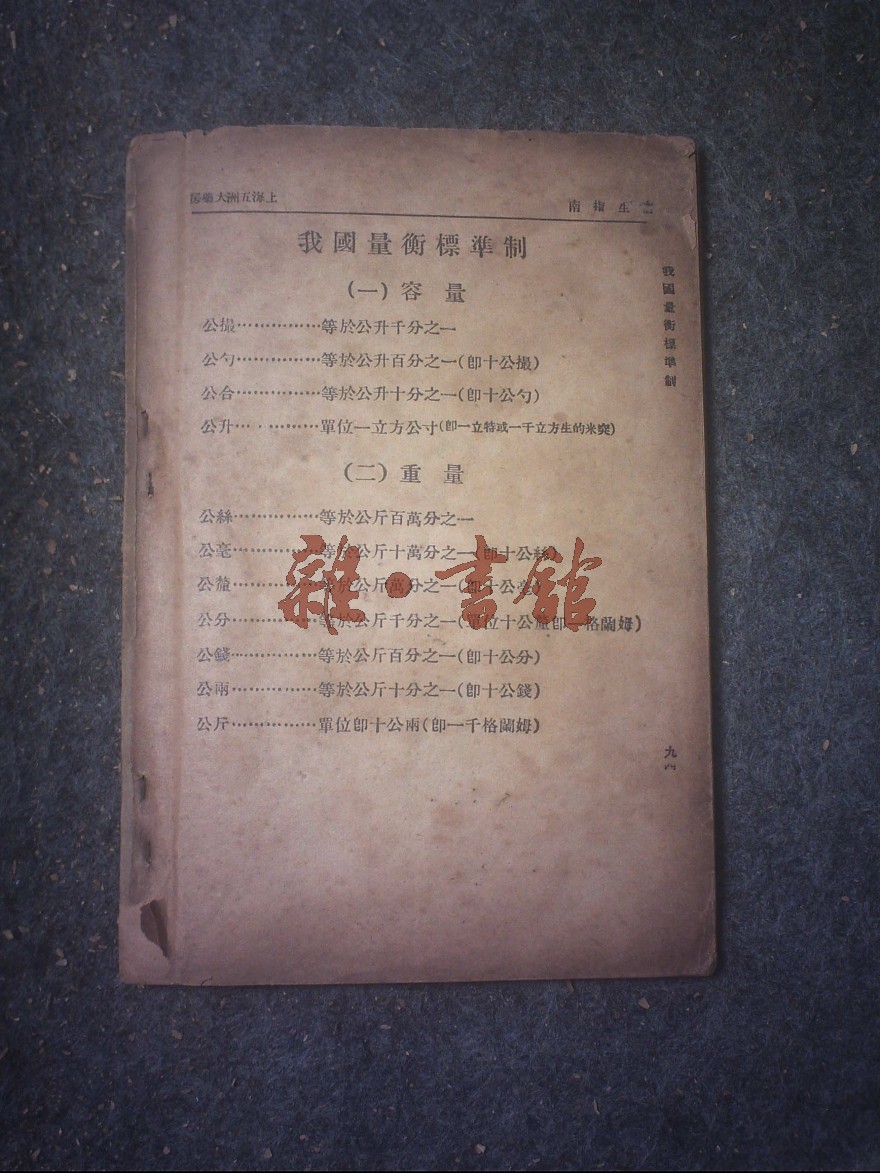 上海五洲大藥房
生指南
我國量衡標準制
我國量衡標準制
(一)容量
公撮……………等於公升千分之一
公勺……………等於公升百分之一(卽十公撮)
公合……………等於公升十分之一(卽十公勺)
公升……………單位一立方公寸(卽一立特或一千立方生的米突)
(二)重量
公絲……………等於公斤百萬分之一
公毫……………等於公斤十萬分之一(卽十公絲)
公釐……………等於公斤萬分之一(卽十公毫)
公分……………等於公斤千分之一(單位十公釐卽一格蘭姆)
公錢……………等於公斤百分之一(卽十公分)
公兩……………等於公斤十分之一(卽十公錢)
公斤……………單位卽十公兩(卽一千格蘭姆)
九
雜·書館